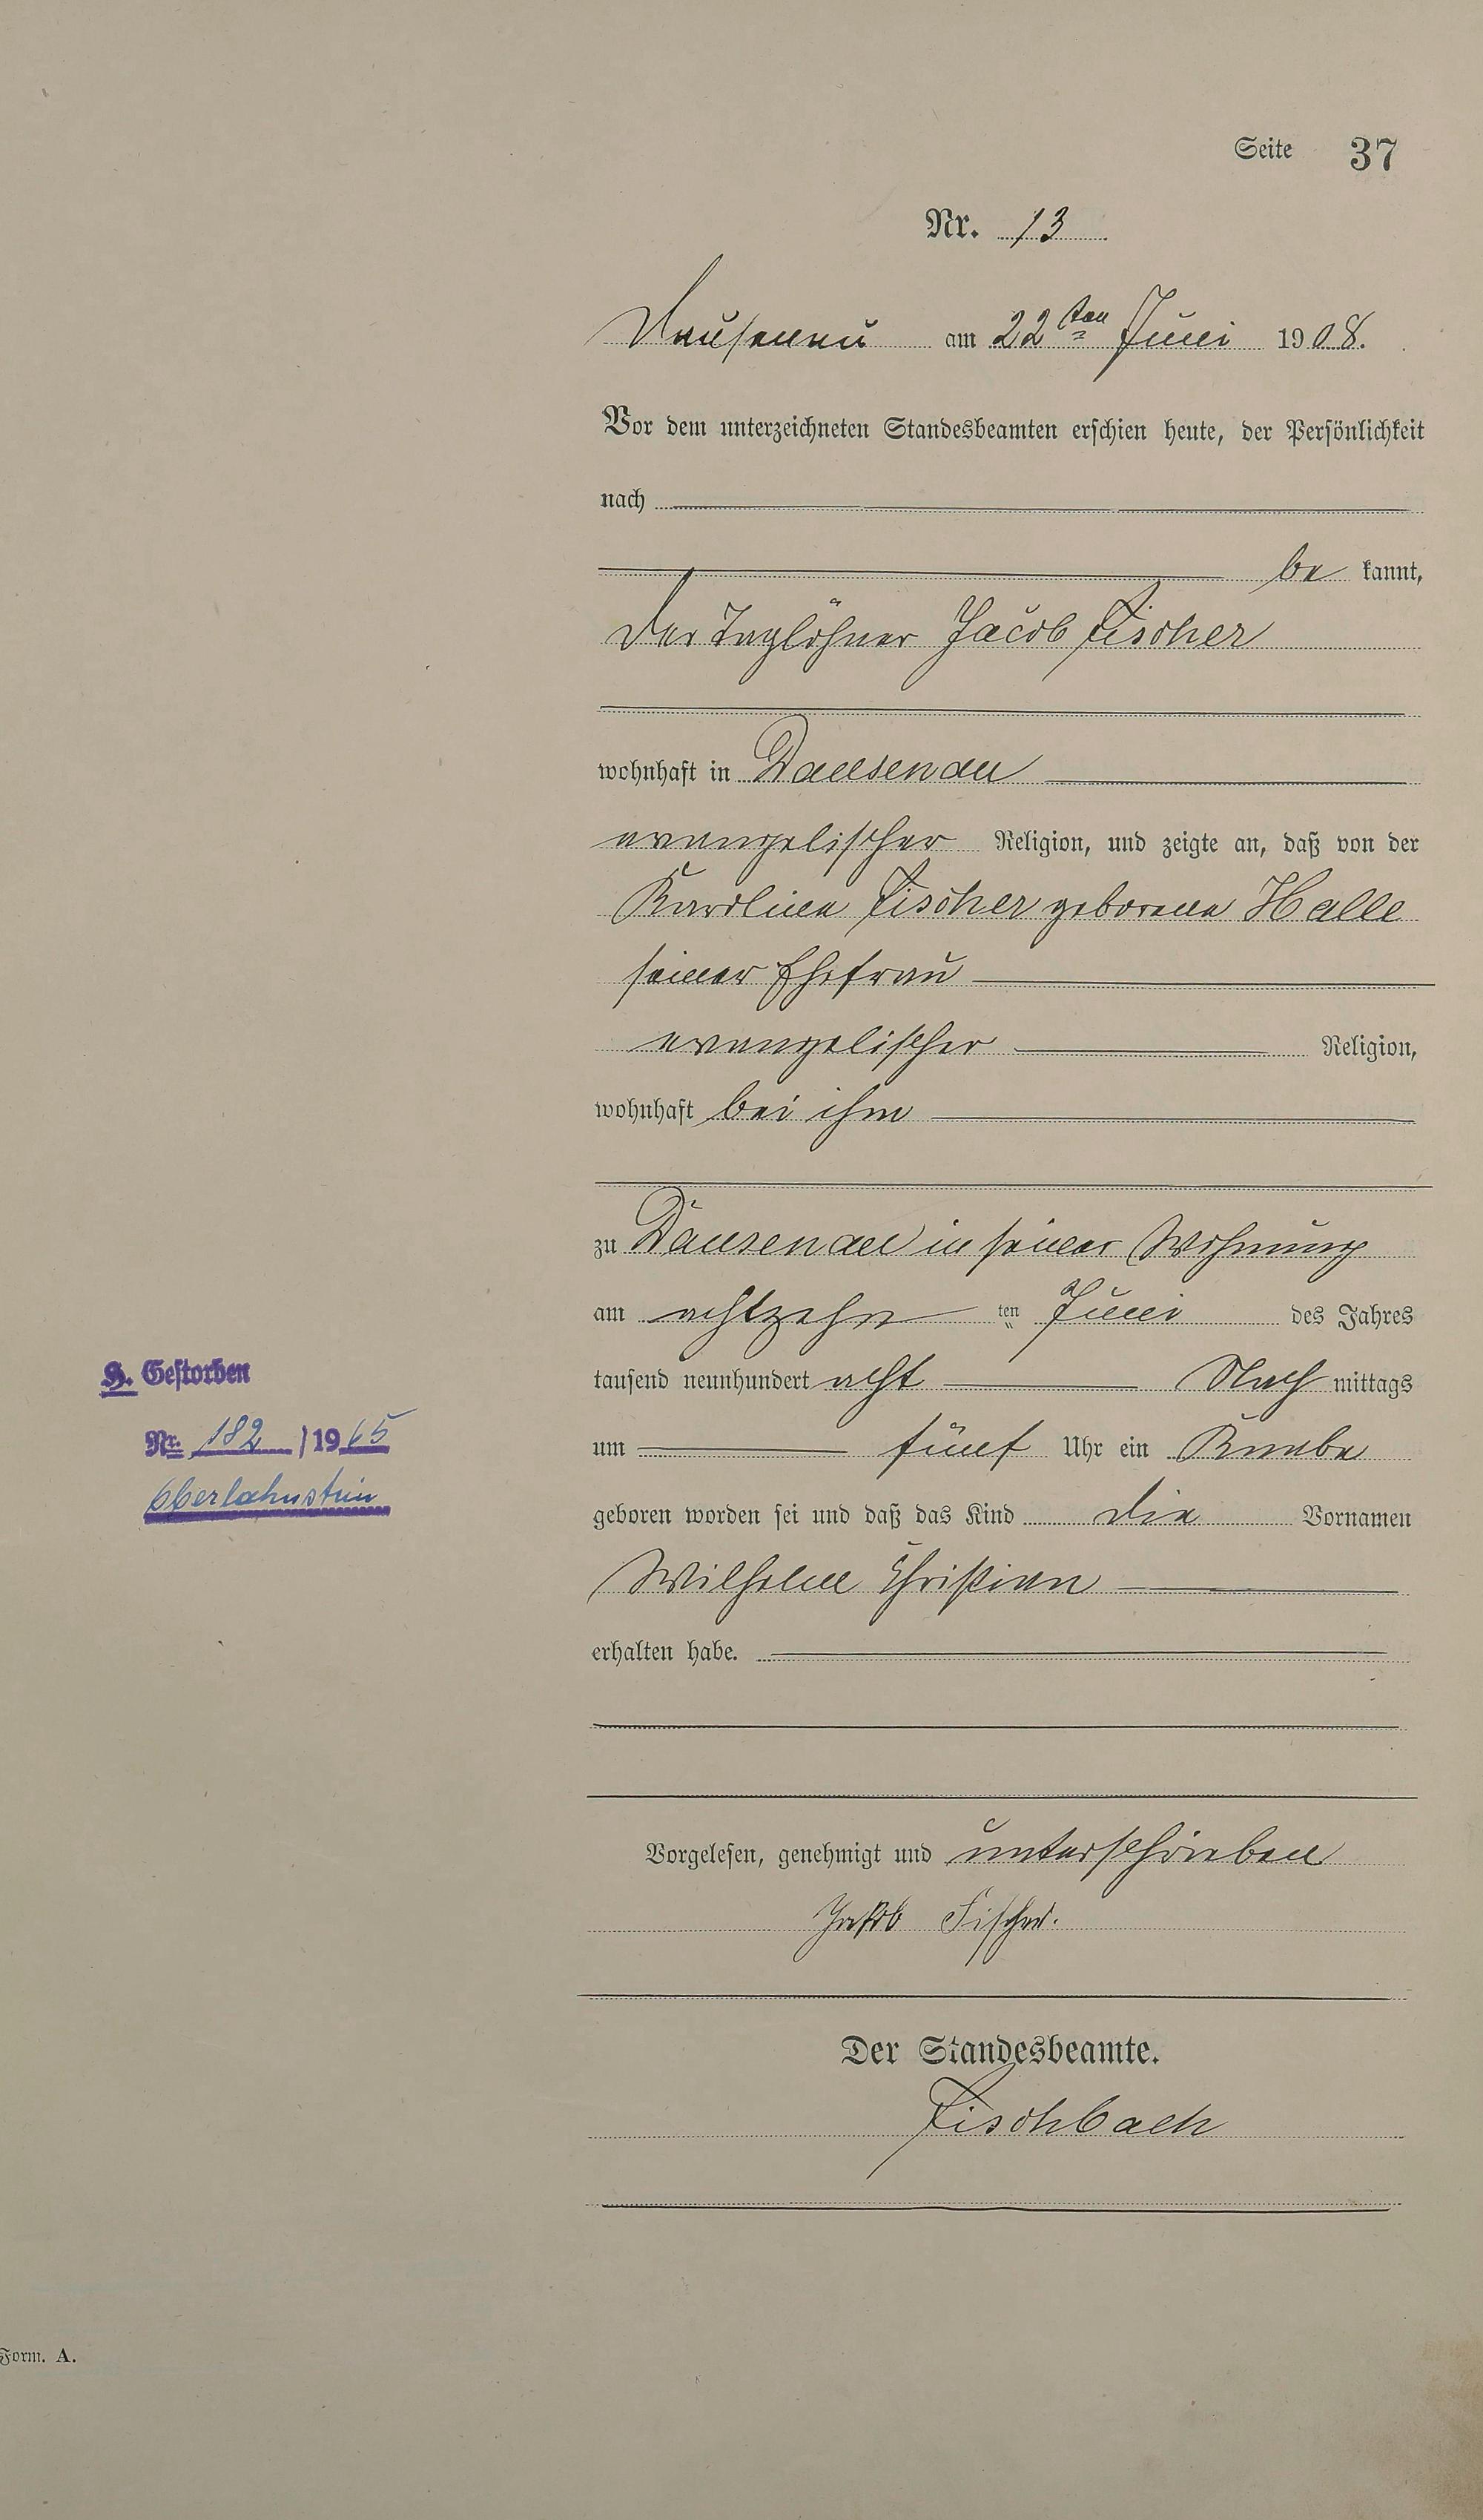 Seite 37
Nr. 13
Dausenau am 22ten Juni 1908.
Vor dem unterzeichneten Standesbeamten erschien heute, der Persönlichkeit
nach
be kannt,
der Taglöhner Jacob Fischer
wohnhaft in Dausenau
evangelischer Religion, und zeigte an, daß von der
Karoline Fischer geborene Halle
seiner Ehefrau
evangelischer Religion,
wohnhaft bei ihm
zu Dausenau in seiner Wohnung
am achtzehn ten Juni des Jahres
tausend neunhundert acht Nach mittags
um fünf Uhr ein Knabe
geboren worden sei und daß das Kind die Vornamen
Wilhelm Christian
erhalten habe.
H. Gestorben
Nr. 182 /1965
Oberlahnstein
Vorgelesen, genehmigt und unterschrieben
Jakob Fischer.
Der Standesbeamte.
Fischbach
Form. A.